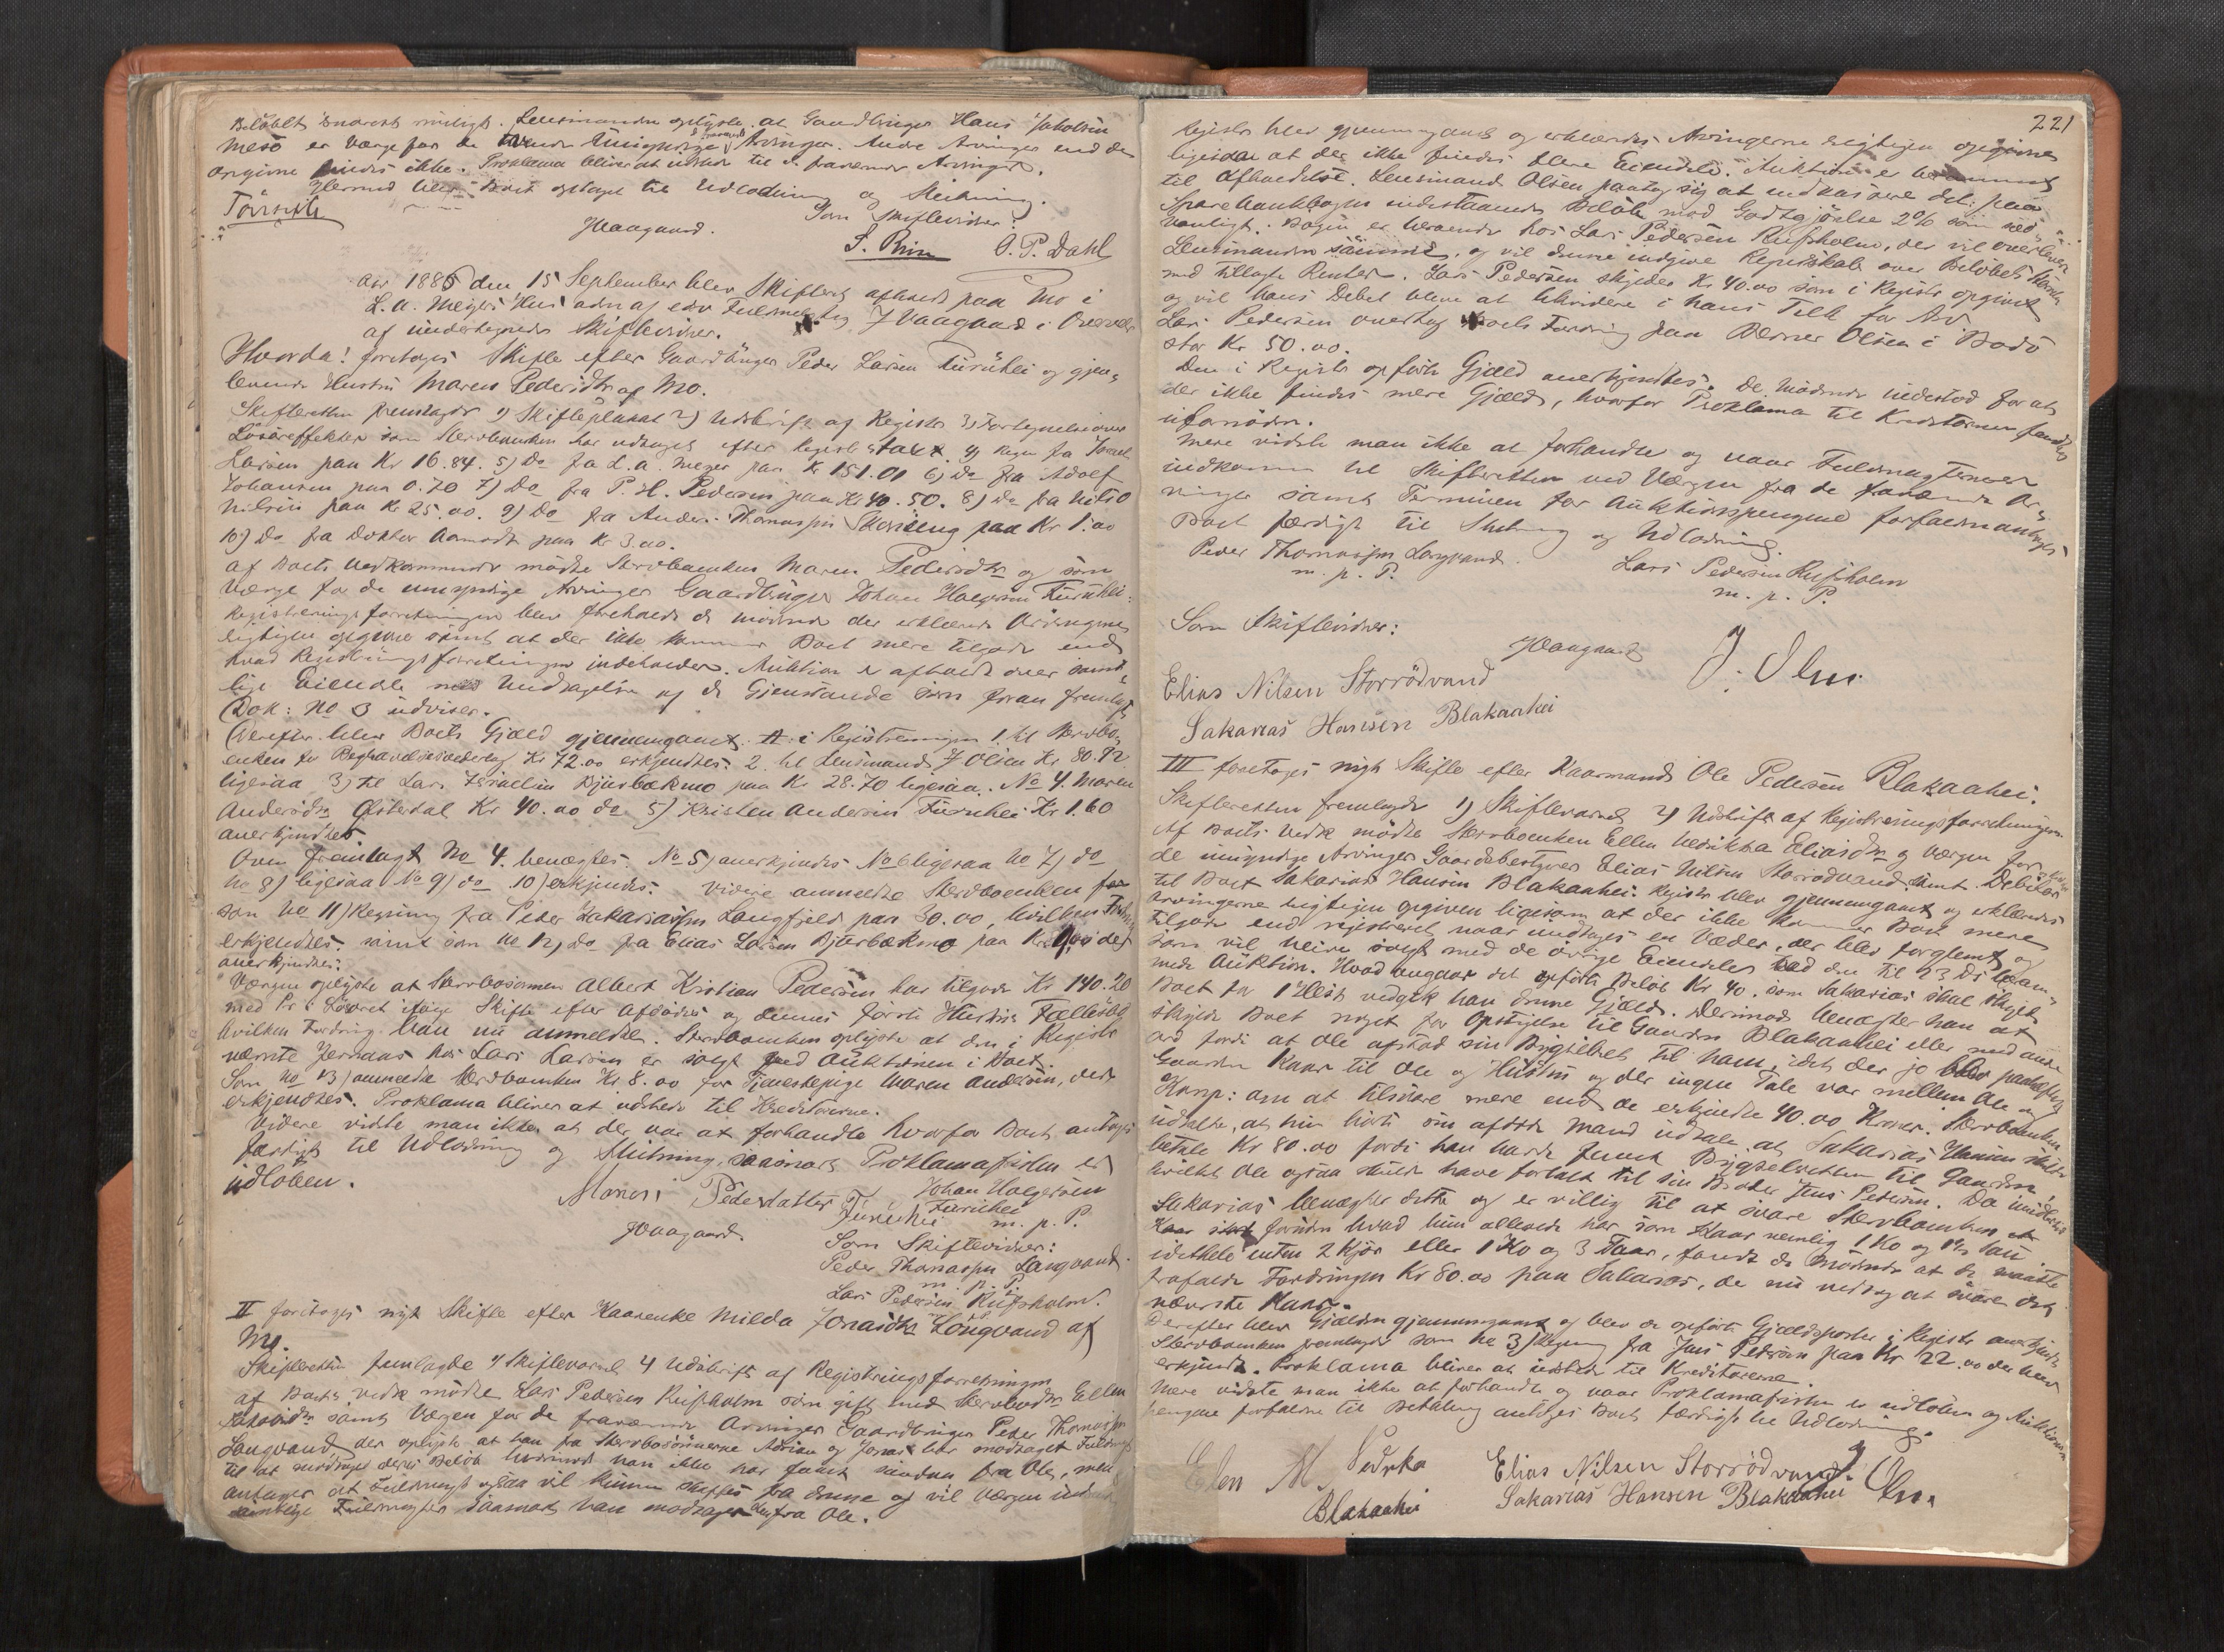 Beløbet snarest muligt. Lensmanden oplyste at Gaardbruger Hans Jakobsen
Mesö er Værge for de tvende Umyndige fraværende Arvinger. Andre Arvinger end de
opgivne findes ikke. Proklama bliver at udstede til de fraværende Arvinger.
Hermed blev Boet optaget til Udlodning og Slutning.
Som Skiftevidner:
JVaagaard.
S. Rim O. P. Dahl
Aar 1886 den 15 September blev Skifteret afholdt paa Mo i
L. A. Meyers Hus adm af edv Fuldmægtig J Vaagaard i Overvær
af undertegnede Skiftevidner.
Hvorda! foretoges Skifte efter Gaardbruger Peder Larsen Furuhei og gjen-
levende Hustru Maren Pedersdtr af Mo.
Skifteretten fremlagde 1) Skifteplakat 2) Udskrift af Registr 3) Fortegnelse over
Løsøreffekter som Stervboenken har udtaget efter Registr: taxt. 4) Regn fra Israel
Larsen paa Kr 16.84. 5) Do fra L. A. Meyer paa Kr 151.01 6) Do fra Adolf
Johansen paa 0.70 7) Do fra P. H. Pedersen paa Kr 40.50. 8) Do fra Nils O
Nilsen paa Kr 25.00. 9) Do fra Anders Thomassen paa Kr 1.00
10) Do fra Doktor Aamodt paa Kr 3.00.
Af Boets Vedkommende mødte Stervboenken Maren Pedersdtr og som
Værge for de umyndige Arvinger Gaardbruger Johan Holgersen Furuhei.
Registreringsforretningen blev foreholdt de mødende der erklærede Arvingerne
rigtigen opgivne samt at der ikke kommer Boet mere tilgode end
hvad Registreringsforretningen indeholder. Auktion er afholdt over samt-
lige Eiendele med Undtagelse af de Gjenstande som foran fremlagt
Dok: No 3 udviser.
Derefter blev Boets Gjæld gjennemgaaet. A: i Registreringen 1. til Stervbo-
enken for Begravelsesvederlag Kr 72.00 erkjendtes. 2. til Lensmand J Olsen Kr 80.12
ligesaa 3) til Lars Israelsen Bjurbækmo paa Kr 28.70 ligesaa. No 4. Maren
Andersdtr Østerdal Kr 40.00 do 5) Kristen Andersen Furuhei Kr 1.60
anerkjendtes
Oven fremlagt No 4. benægtes. No 5) anerkjendes No 6 ligesaa No 7) do
No 8) ligesaa No 9) do 10) erkjendes. Videre anmeldte Stervboenken
som No 11) Regning fra Peder Zakariassen Langfjeld paa 30.00, hvilken Fordring
erkjendtes. samt som No 12) Do fra Elias Larsen Bjurbækmo paa Kr der
anerkjendtes.
Værgen oplyste at Stervbosønnen Albert Kristian Pedersen har tilgode Kr 140.20
med Pr i Løsøret ifølge Skifte efter Afdødes og dennes første Hustrus Fællesbo
hvilken Fordring han nu anmeldte. Stervboenken oplyste at den i Registr
nævnte Jernaas hos Lars Larsen er solgt ved Auktionen i Boet.
Som No 13) anmeldte Stervboenken Kr 8.00 for Tjenestepige Maren Andersen, der
erkjendtes. Proklama bliver at udstede til Kreditorerne.
Videre vidste man ikke at der var at forhandle hvorfor Boet antages
færdigt til Udlodning og Slutning, saasnart Proklamafristen er
udløben.
Maren Pedersdatter Furuhei
Johan Holgersen
Furuhei
m. p. P.
JVaagaard.
Som Skiftevidner:
Peder Thomassen Langvand
m. p. P.
Lars Pedersen Rufsholm.
II foretoges nyt Skifte efter Kaarenke Milda Jonasdtr Langvand af
Mo.
Skifteretten fremlagde 1) Skiftevarsel 2) Udskrift af Registreringsforretningen
Af Boets vedk mødte Lars Pedersen Rufsholm som gift med Stervbodtr Ellen
samt Værgen for de fraværende Arvinger Gaardbruger Peder Thomassen
Langvand der oplyste at han fra Stervbosønnerne Adrian og Jonas har modtaget Fuldmagt
til at modtage deres Beløb hvorimod han ikke har faaet saadan fra Ole, men
antager at Fuldmagt ogsaa vil kunne skaffes fra denne og vil Værgen
Fuldmagter saasnart han modtager den fra Ole.
221
Registr blev gjennemgaaet og erklæredes Arvingerne rigtigen opgivne
ligesom at der ikke findes flere Eiendele. Auktion er berammet
til Afholdelse. Lensmand Olsen paatog sig at indkassere det paa
Sparebankbogen indestaaende Beløb mod Godtgjørelse 2% som sed-
vanligt. Bogen er beroende hos Lars Pedersen Rufsholm, der vil overlevere
Lensmanden samme, og vil denne indgive Regnskab over Beløbets
med tillagte Renter. Lars Pedersen skylder Kr 40.00 som i Registr opgivet
og vil hans Debet blive at likvidere i hans Tilk for Arv
Lars Pedersen overtog Boets Fordring paa Berner Olsen i Bodø
stor Kr 50.00.
Den i Registr opførte Gjæld anerkjendtes. De Mødende indestod for at
der ikke findes mere Gjæld, hvorfor Proklama til Kreditorerne fandtes
ufornøden.
Mere vidste man ikke at forhandle og naar Fuldmagterne er
indkomne til Skifteretten ved Værgen fra de fraværende Ar-
vinger samt Terminen for Auktionspengene forfalden antages
Boet færdigt til Slutning og Udlodning.
Peder Thomassen Langvand.
m. p. P.
Lars Pedersen Rufsholm
m. p. P.
Som Skiftevidner:
JVaagaard
J. Olsen
Elias Nilsen Storrödvand
Sakarias Hansen Blakaahei
III foretoges nyt Skifte efter Kaarmand Ole Pedersen Blakaahei.
Skifteretten fremlagde 1) Skiftevarsel 2) Udskrift af Registreringsforretningen
Af Boets vedk mødte Stervboenken Ellen Hedrikka Eliasdtr og Værgen for
de umyndige Arvinger Gaardsbestyrer Elias Nilsen Storrødvand samt Debitor
til Boet Sakarias Hansen Blakaahei. Registr blev gjennemgaaet og erklæredes
Arvingerne rigtigen opgiven ligesom at der ikke kommer Boet mere
tilgode end registreret naar undtages en Væder, der blev forglemt og
som vil blive solgt med de øvrige Eiendele ved den til 23 Ds beram-
mede Auktion. Hvad angaar det opførte Beløb Kr 40. som Sakarias skal skylde
Boet for 1 Hest vedgik han denne Gjæld. Derimod benægter han at
skylde Boet noget for Opsigelse til Gaarden Blakaahei eller med andre
ord fordi at Ole afstod sin Bygselret til ham, idet der jo blev paahæftet
Gaarden Kaar til Ole og Hustru og der ingen Tale var mellem Ole og
Komp: om at tilsvare mere end de erkjendte 40.00 Kroner. Stervboenken
udtalte, at hun hørte sin afdøde Mand udtale at Sakarias Hansen skulde
betale Kr 80.00 fordi han havde faaet Bygselretten til Gaarden,
hvilket Ole ogsaa skulde have fortalt til sin Broder Jens Pedersen. Da imidlertid
Sakarias benægter dette og er villig til at svare Stervboenken
Kaar foruden hvad hun allerede har som Kaar nemlig 1 Ko og
idethele enten 2 Kjør eller 1 Ko og 3 Faar, fandt de Mødende at de maatte
frafalde Fordringen Kr 80.00 paa Sakarias, da nu vedtog at svare det
nævnte Kaar.
Derefter blev Gjælden gjennemgaaet og blev de opførte Gjældsposter i Registr anerkjendte
Stervboenken fremlagde som No 3) Regning fra Jens Pedersen paa Kr 22.00 der blev
erkjendt. Proklama bliver at udstede til Kreditorerne.
Mere vidste man ikke at forhandle og naar Proklamafristen er udløben og Auktions-
pengene forfaldne til Betaling antages Boet færdigt til Udlodning.
Elen M. Hedrka
Blakaahei
Elias Nilsen Storrödvand.
Sakarias Hansen Blakaahei
J Olsen.